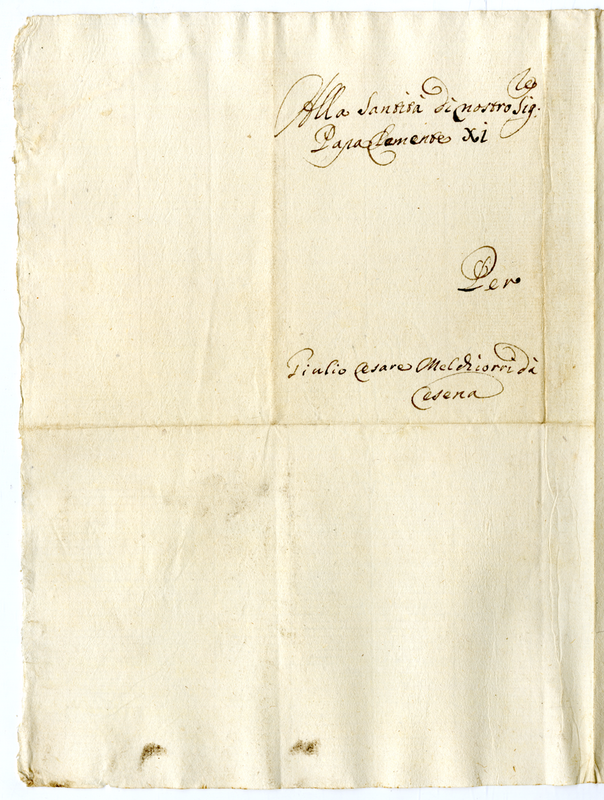 Alla Santità di nostro Sig.re
Papa Clemente XI
Per
Giulio Cesare Melchiorri dà
Cesena